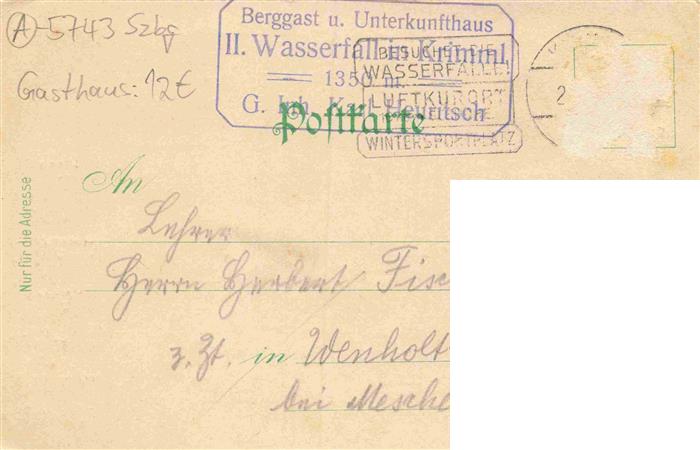 (A)-5743 Szbg
Gasthaus: 12€
Berggast u. Unterkunfthaus
II. Wasserfall in Krimml
1350 m.
G. Inh. Karl Heuritsch
BESUCHET DIE
WASSERFÄLLE!
LUFTKURORT
WINTERSPORTPLATZ
2
Postkarte
Nur für die Adresse
An
Lehrer
Herrn Herbert Fisc
z. Zt. in Wenholt
bei Mesche